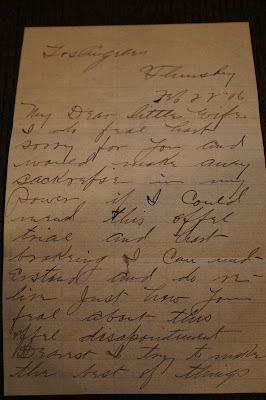 Los Angeles
Thursday
Feb 22 '06
My Dear little Wife
I do feal hart
sorry for you and
would make away
sackrefise in my
Power if I Could
mend this offel
trial and hart
brokeing I Can und-
erstand and do re-
live Just how you
feal about this
offel disapointment
Dearest I try to make
the best of things